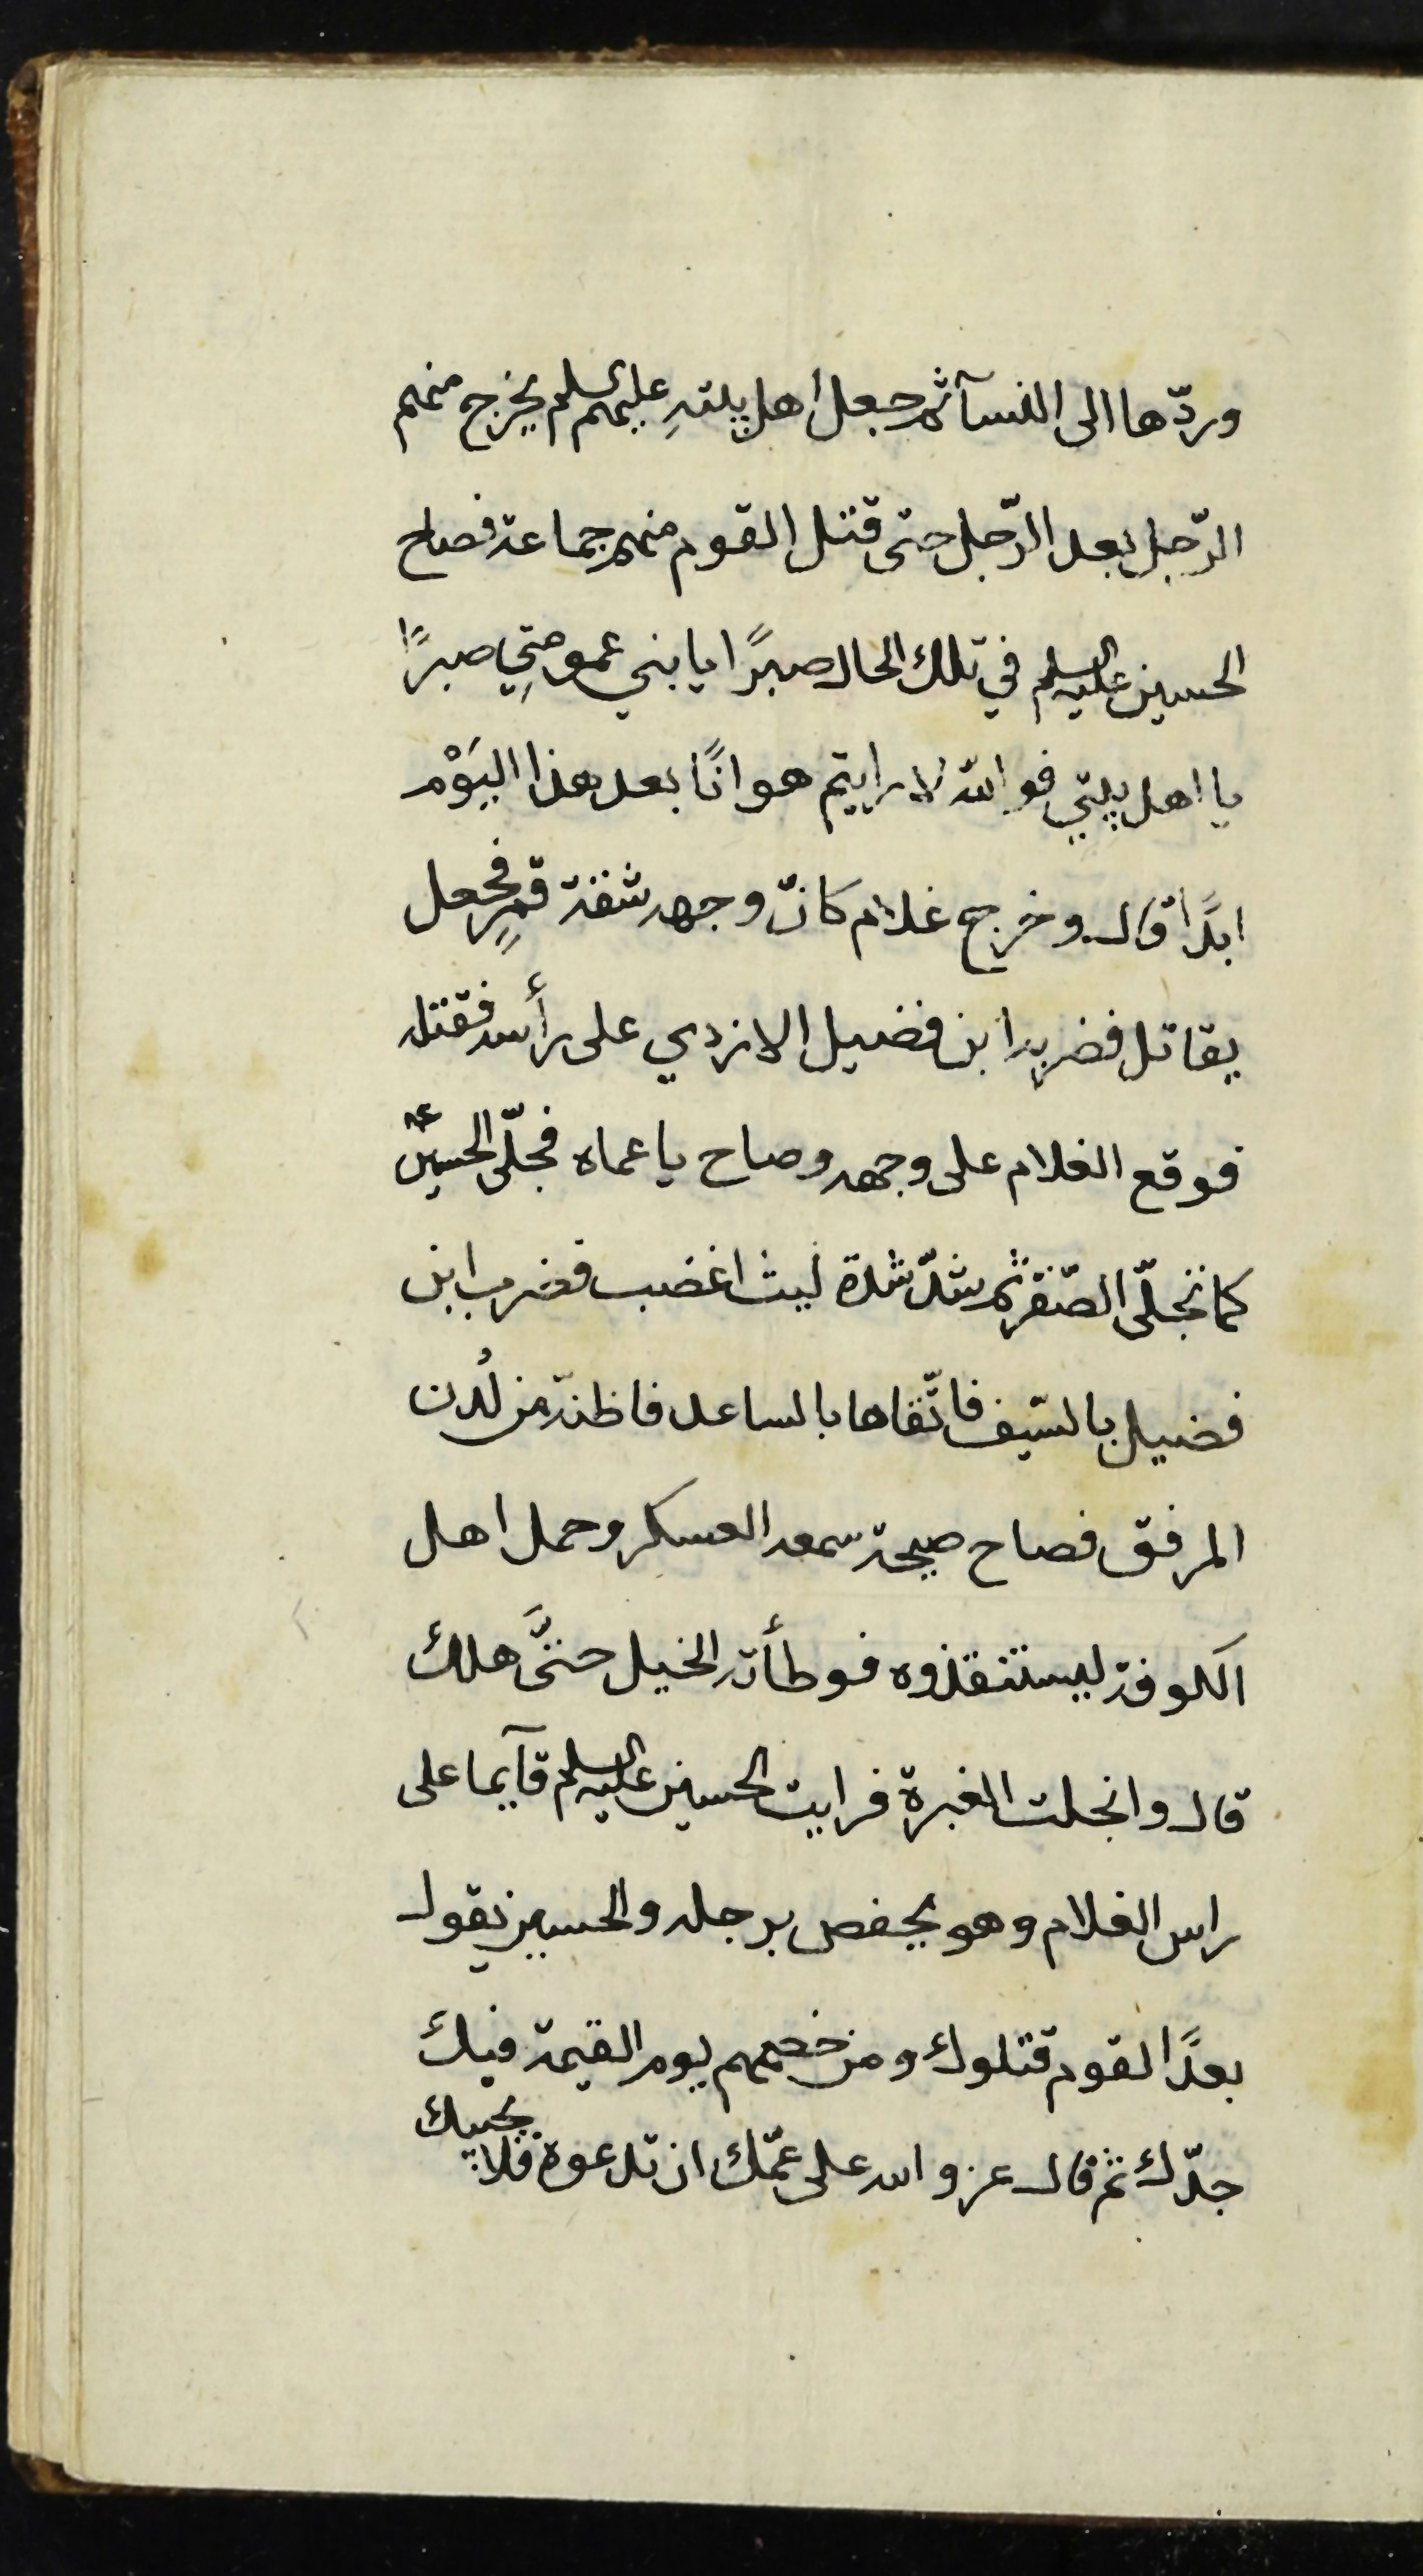 وردّها الى النسآ ثم جعل اهل بيتهِ عليهم السلم يخرج منهم
الرّجل بعد الرّجل حتى قتل القوم منهم جماعة فصاح
الحسين عليه السلم في تلك الحال صبرًا يا بني عمومتِي صبرًا
يا اهل بيتي فوالله لا رايتم هوانًا بعد هذا اليَوْم
ابدًا قال وخرج غلام كانّ وجهه شقة قمرٍ فجعل
يقاتل فضربه ابن فضيل الازدي على رأسه فقتله
فوقع الغلام على وجهه وصاح يا عماه فجلّى الحسين ع
كما تجلّى الصّقر ثم شدّ شدة ليث اغضب فضرب ابن
فضيل بالسّيف فاتّقاها بالساعد فاظنّه من لُدن
المرفق فصاح صيحة سمعه العسكر وحمل اهل
الكوفة ليستنقذوه فوطأته الخيل حتَّى هلك
قال وانجلت الغبرة فرايت الحسين عليه السلم قآيما على
راس الغلام وهو يحفص برجله والحسين يقول
بعدًا لقوم قتلوك ومن خصمهم يوم القيمة فيك
جدّك ثم قال عز والله على عمّك ان تدعوه فلا يجيبك